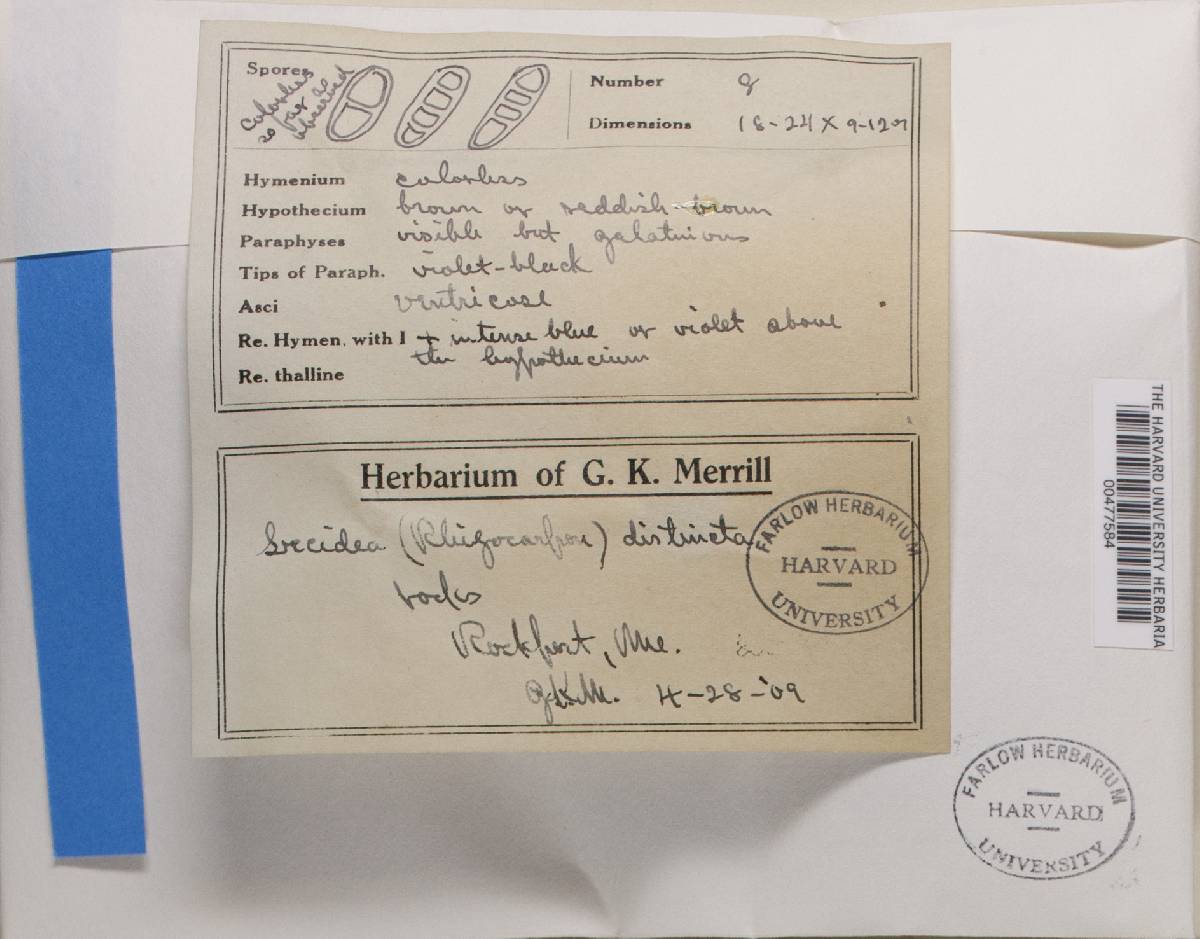 Spores
colorless
so far as
observed
Number 8
Dimensions 18-24 X 9-12
Hymenium colorless
Hypothecium brown or reddish-brown
Paraphyses visible but gelatinous
Tips of Paraph. violet-black
Asci ventricose
Re. Hymen. with I + intense blue or violet above
the hypothecium
Re. thalline
Herbarium of G. K. Merrill
Lecidea (Rhizocarpon) distincta
rocks
Rockport, Me.
G.K.M. 4-28-'09
FARLOW HERBARIUM
HARVARD
UNIVERSITY
THE HARVARD UNIVERSITY HERBARIA
00477584
FARLOW HERBARIUM
HARVARD
UNIVERSITY